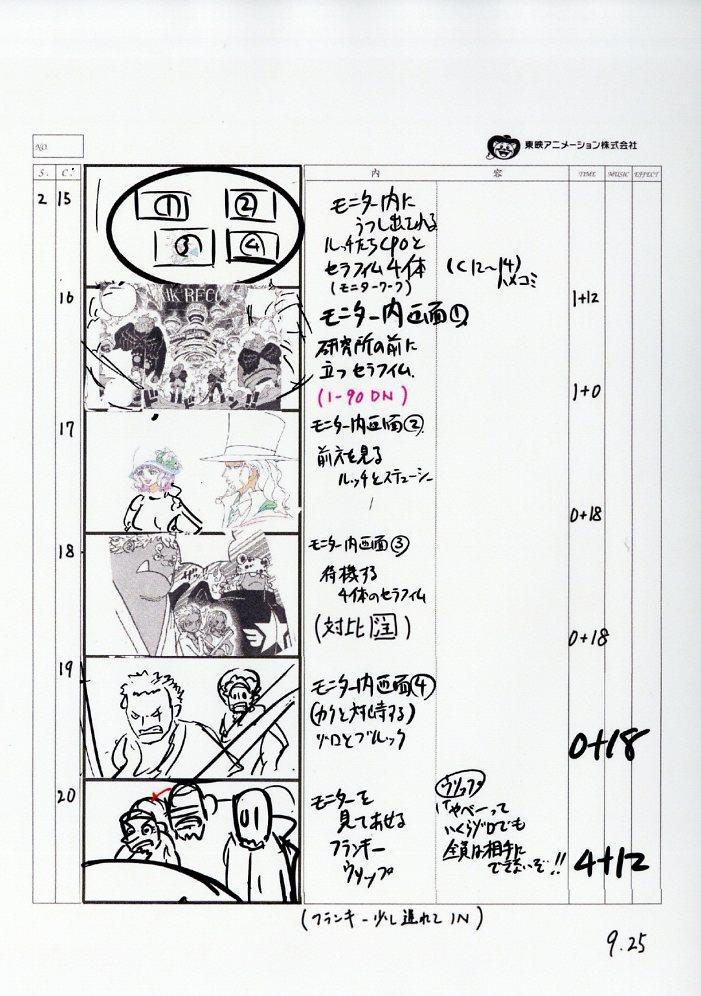 NO.
東映アニメーション株式会社
S. C. 内 容 TIME MUSIC EFFECT
2 15
① ②
③ ④
モニター内に
うつし出される
ルッチたちCP0と
セラフィム4体 (C12〜14)
(モニターワーク) ハメコミ
1+12
16
モニター内画面①
研究所の前に
立つセラフィム.
(1-90 DN)
1+0
17
モニター内画面②
前方を見る
ルッチとステューシー
0+18
18
モニター内画面③
待機する
4体のセラフィム
(対比注)
0+18
19
モニター内画面④
(カクと対峙する)
ゾロとブルック
0+18
20
モニターを
見てあせる
フランキー
ウソップ
ウソップ
やべーって
いくらゾロでも
全員は相手に
できないぞ!!
4+12
(フランキー少し遅れて IN)
9.25